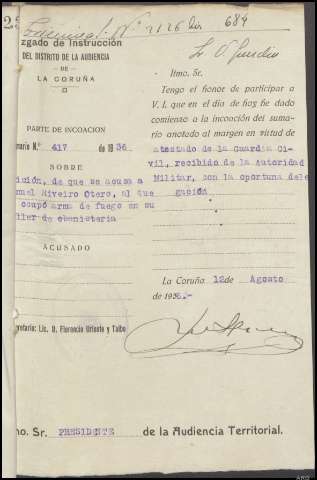 684
zgado de Instrucción
DEL DISTRITO DE LA AUDIENCIA
DE
LA CORUÑA
PARTE DE INCOACION
mario N.º 417 de 1936
SOBRE
ición, de que se acusa a
nuel Riveiro Otero, al que
ocupó arma de fuego en su
ller de ebanistería
ACUSADO
cretario: Lic. D. Florencio Uriente y Taibo
Iltmo. Sr.
Tengo el honor de participar a
V. I. que en el día de hoy he dado
comienzo a la incoación del suma-
rio anotado al margen en virtud de
atestado de la Guardia Ci-
vil, recibido de la Autoridad
Militar, con la oportuna dele
gación
La Coruña 12 de Agosto
de 1936.-
mo. Sr. PRESIDENTE de la Audiencia Territorial.